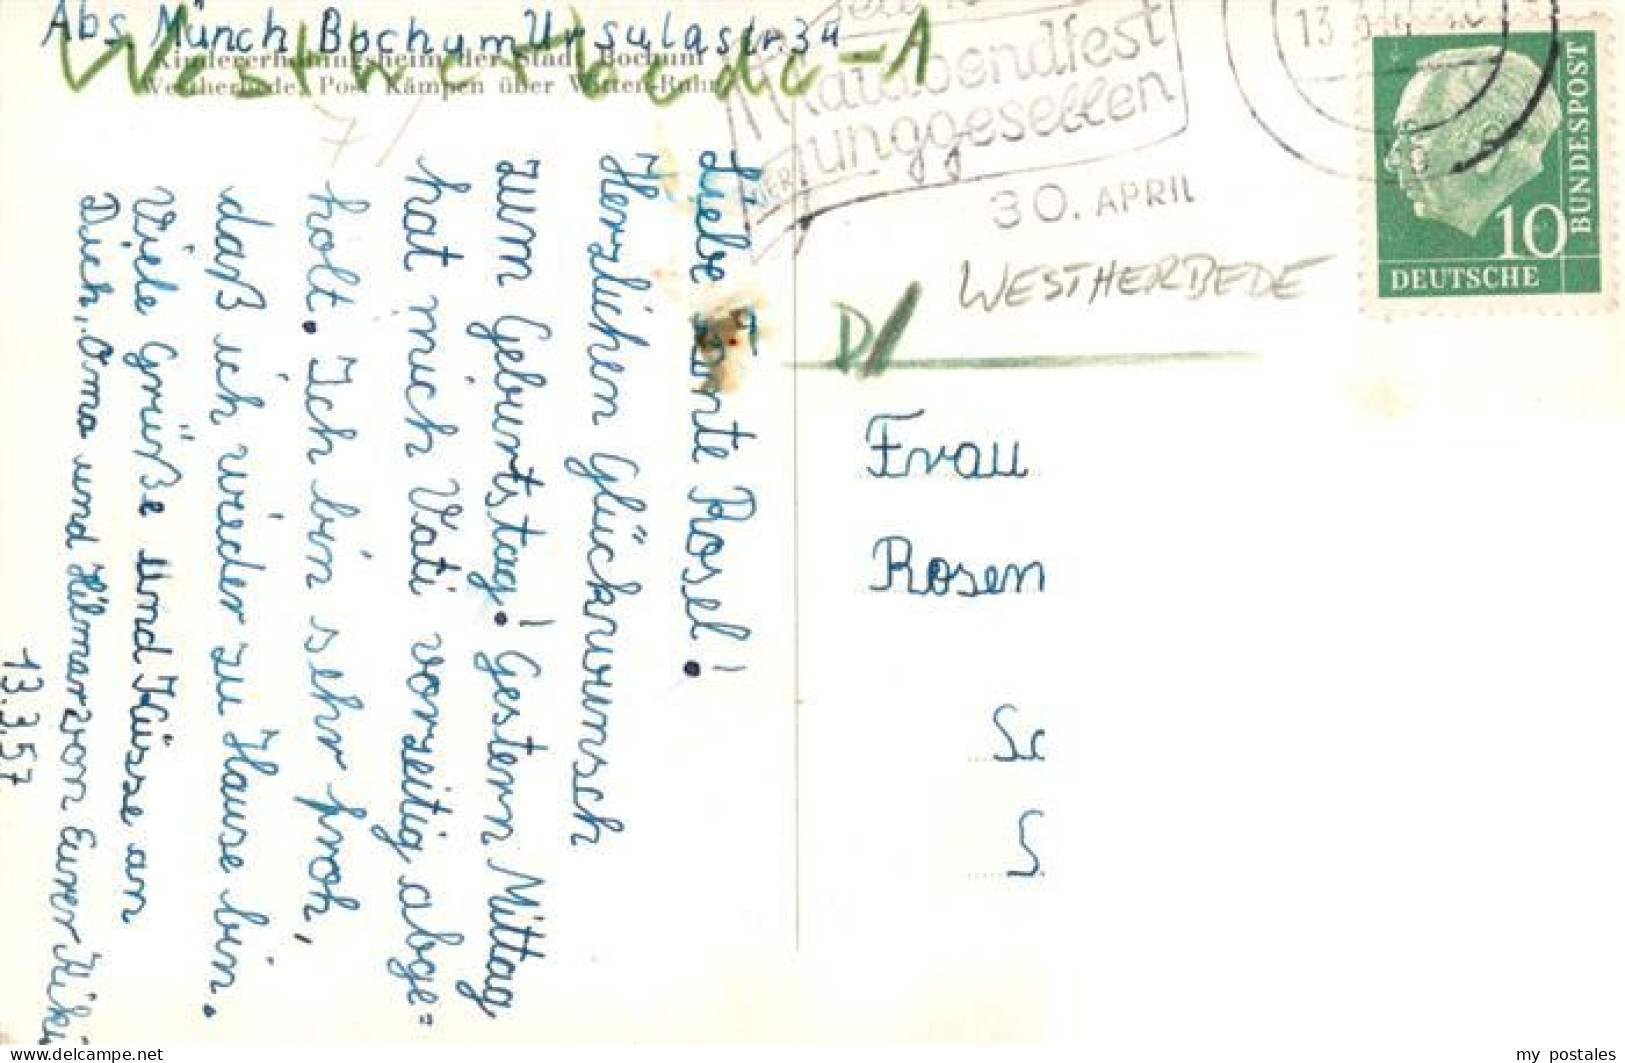 Abs. Münch Bochum Ursulastr. 34
Westherbede-A
Kindererholungsheim der Stadt Bochum
Westherbede, Post Kämpen über Witten-Ruhr
Maiabendfest
DER Junggesellen
30. APRIL
13
10
DEUTSCHE
BUNDESPOST
D/
WESTHERBEDE
Liebe Tante Rosel!
Herzlichen Glückwunsch
zum Geburtstag! Gestern Mittag
hat mich Vati vorzeitig abge=
holt. Ich bin sehr froh,
daß ich wieder zu Hause bin.
Viele Grüße und Küsse an
Dich, Oma und Hilmar von Eurer Kiki
13.3.57
Frau
Rosen
Sc
S
my postales